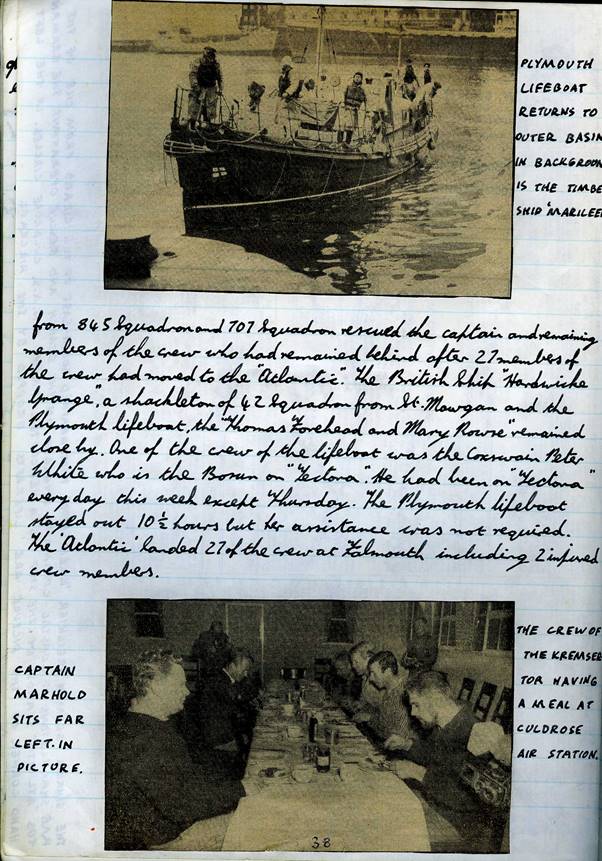 PLYMOUTH
LIFEBOAT
RETURNS TO
OUTER BASIN
IN BACKGROUN
IS THE TIMBE
SHIP 'MARILEE
from 845 Squadron and 707 Squadron rescued the captain and remaining
members of the crew who had remained behind after 27 members of
the crew had moved to the "Atlantic". The British Ship "Hardwicke
Grange", a shackleton of 42 Squadron from St. Mawgan and the
Plymouth lifeboat, the "Thomas Forehead and Mary Rowse" remained
close by. One of the crew of the lifeboat was the Coxswain Peter
White who is the Bosun on "Tectona". He had been on "Tectona"
everyday this week except Thursday. The Plymouth lifeboat
stayed out 10½ hours but her assistance was not required.
The 'Atlantic' landed 27 of the crew at Falmouth including 2 injured
crew members.
THE CREW OF
THE KREMSER
TOR HAVING
A MEAL AT
CULDROSE
AIR STATION.
CAPTAIN
MARHOLD
SITS FAR
LEFT. IN
PICTURE.
38